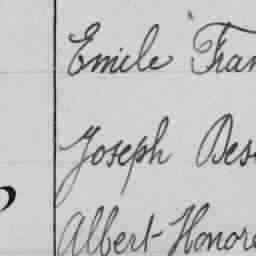 Emile Fran
Joseph Des
Albert-Honoré